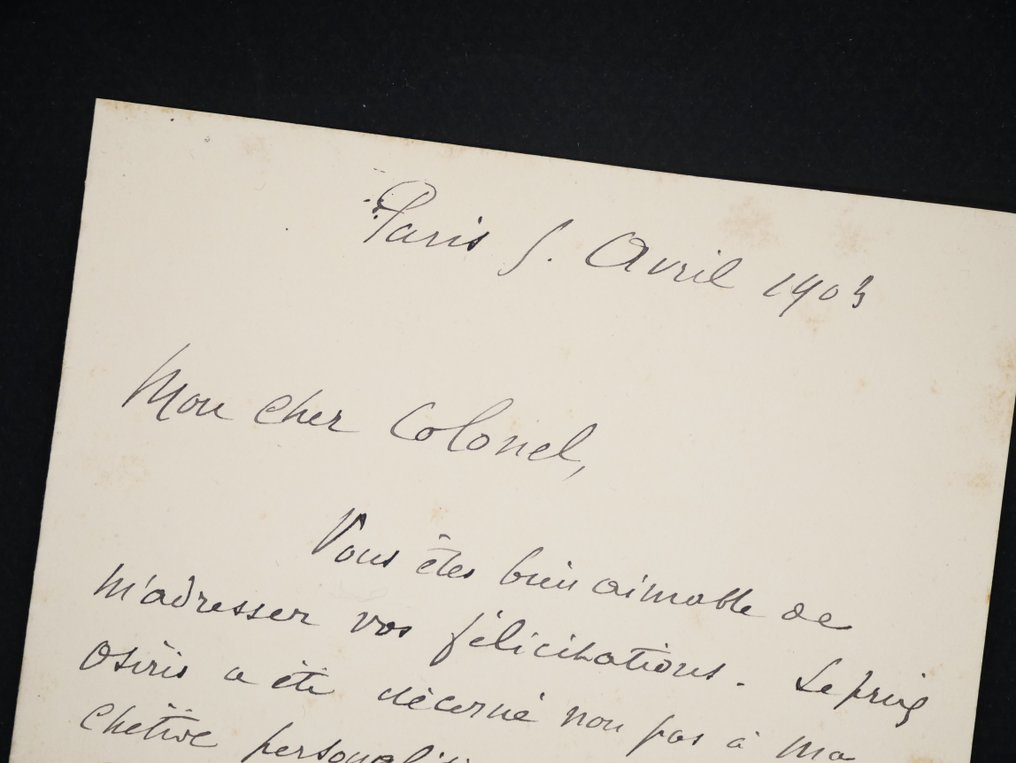 Paris 5. Avril 1903
Mon cher Colonel,
Vous êtes bien aimable de
m'adresser vos félicitations. Le prix
Osiris a été décerné non pas à ma
chétive